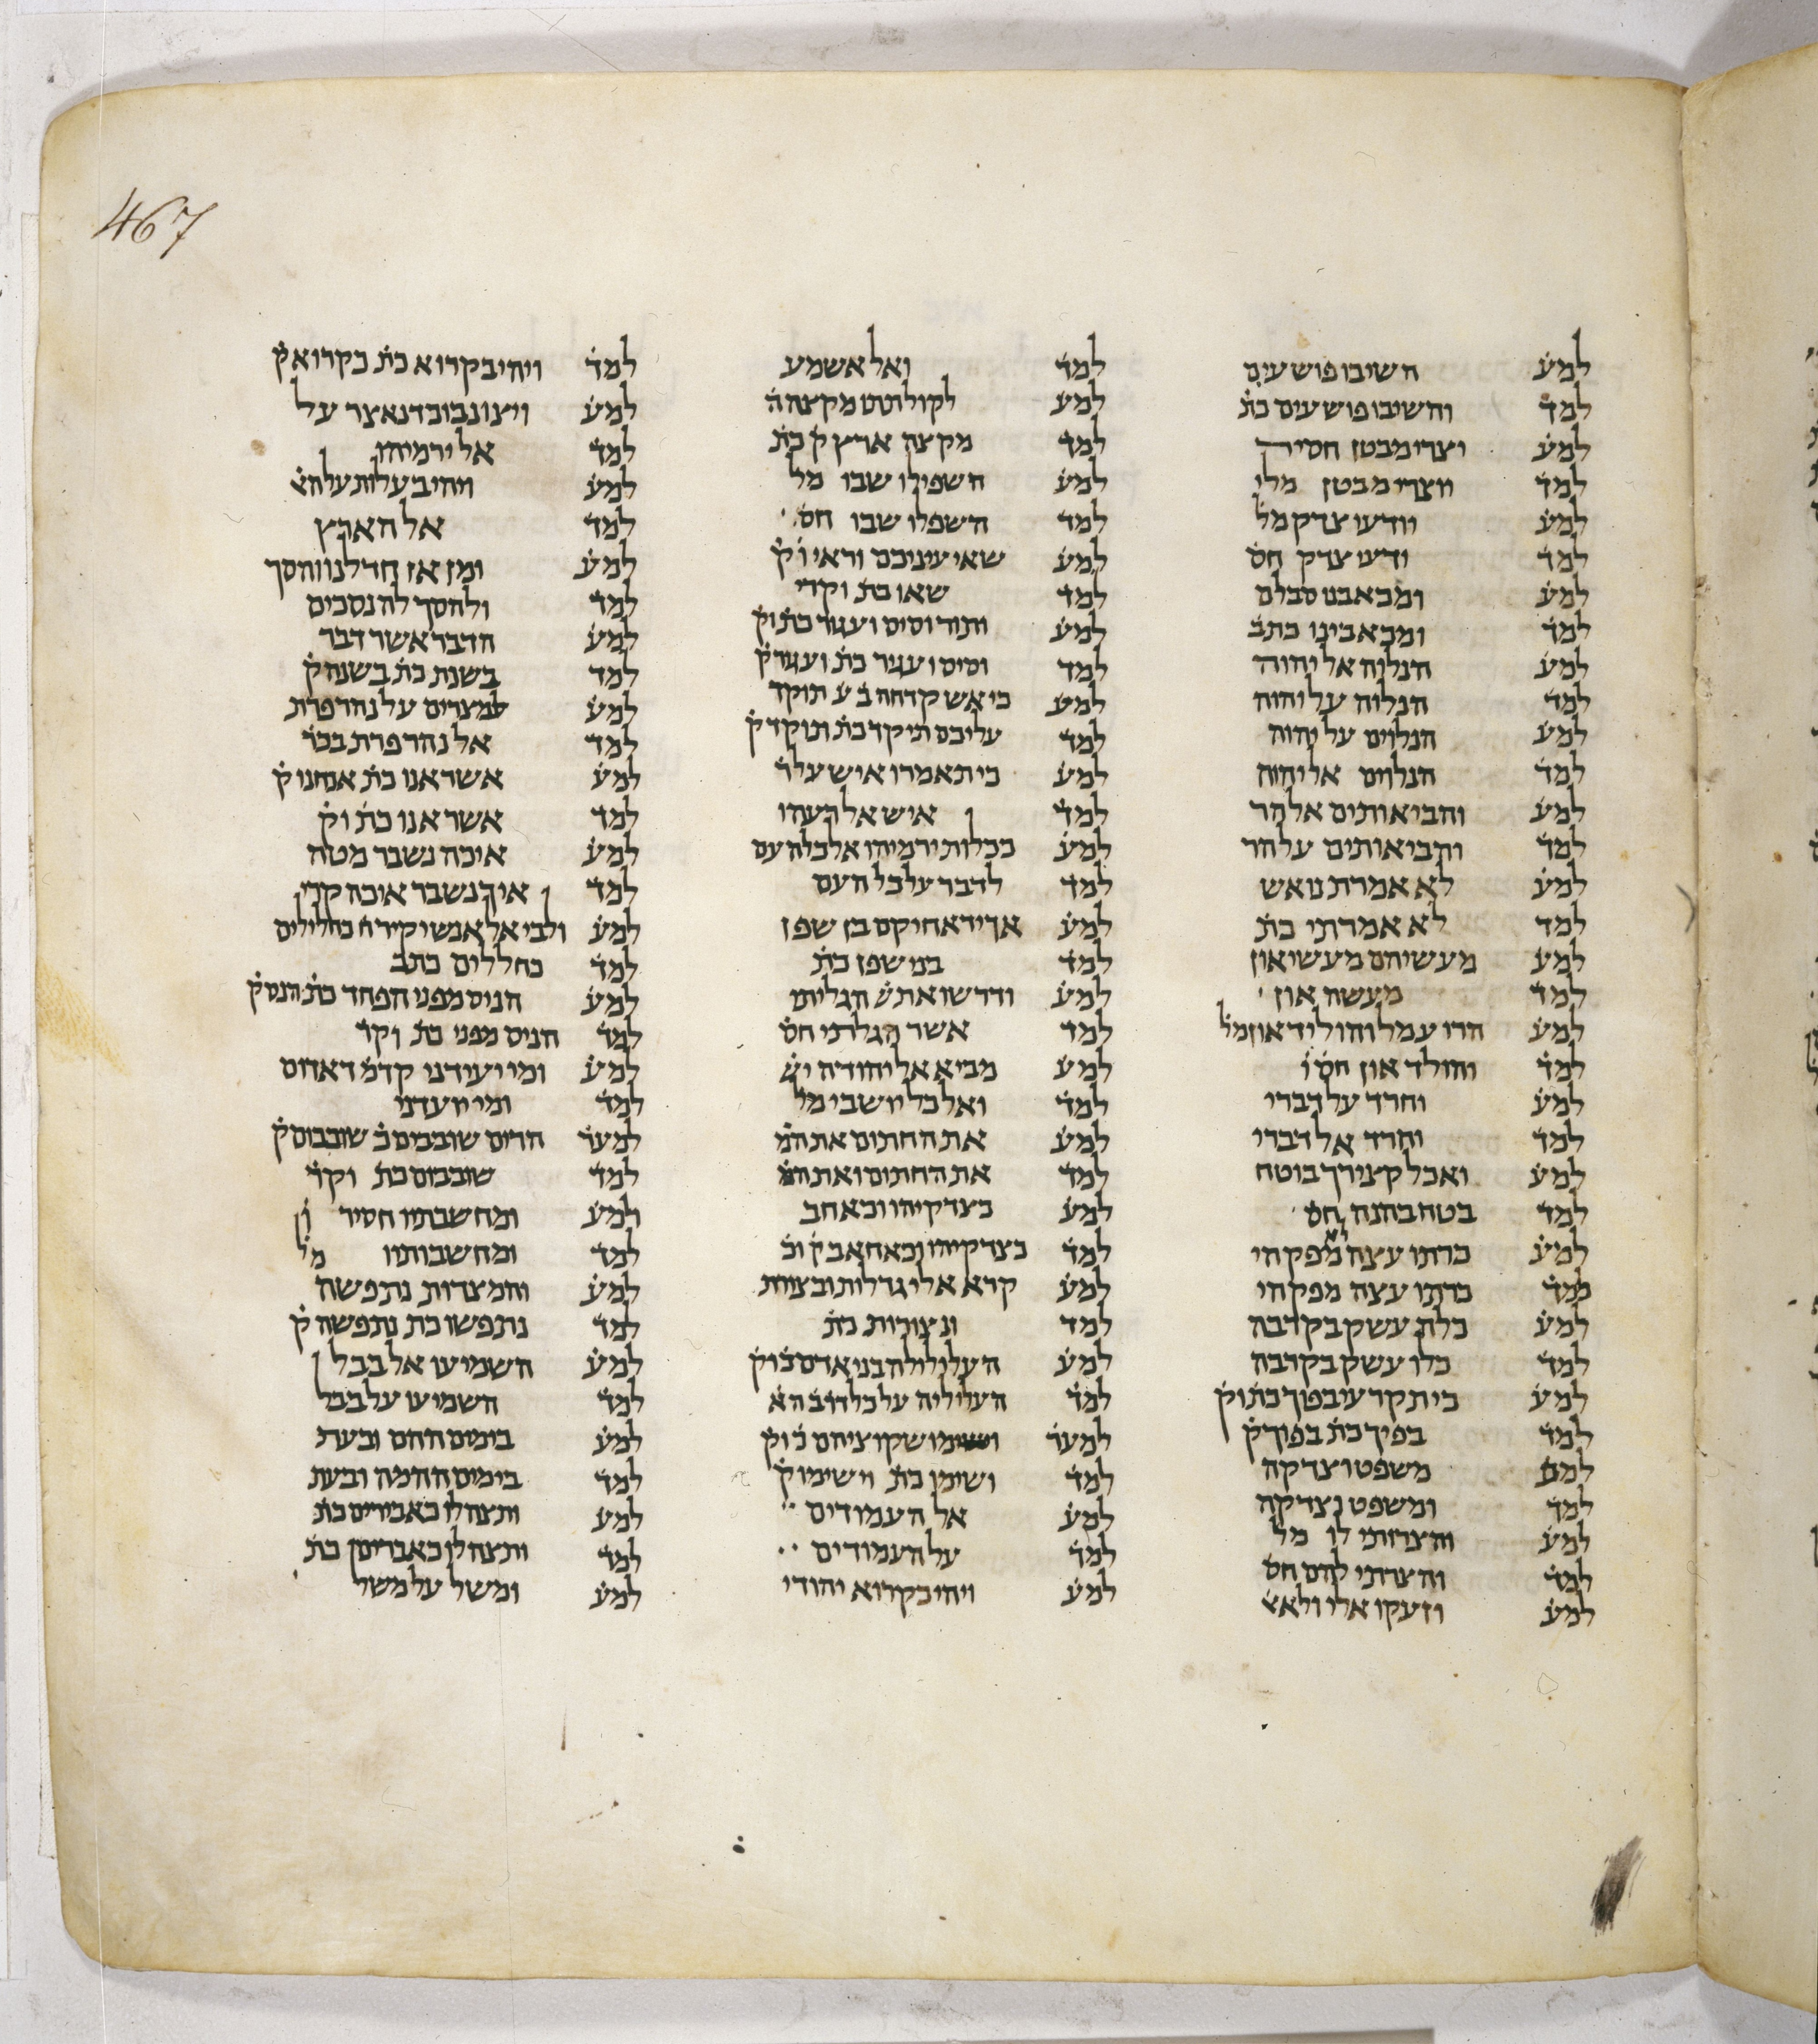 467
למע השיבו פושעים
למד והשיבו פושעים כת
למע וצרי מבטן חסיר
למד ויוצרי מבטן מלי
למע יודעי צדק מל
למד ידעי צדק חס
למע ומכאבנו סבלם
למד ומכאבינו כתב
למע הנלוה אל יהוה
למד הנלוה על יהוה
למע הנלוים על יהוה
למד הנלוים אל יהוה
למע והביאותים אל הר
למד והביאותים על הר
למע לא אמרת נואש
למד לא אמרתי כת
למע מעשיהם מעשי און
למד מעשה און
למע הרו עמל והוליד און מל
למד והולד און חס
למע וחרד על דברי
למד וחרד אל דברי
למע ואכל קצירך בוטח
למד בטח בהנה חס
למע כרתו עצה מפקחי
למד כרתו עצה מפקחי
למע כלת עשק בקרבה
למד כלו עשק בקרבה
למע כי תקרעי בפוך כת וק
למד בפיך כת בפוך ק
למע משפט וצדקה
למד ומשפט וצדקה
למע והצרותי לו מל
למד והצרתי להם חס
למע וזעקו אלי ולא א
למד ואל אשמע
למע לקול תתו מקצה ה
למד מקצה ארץ ק כת
למע השפילו שבו מל
למד השפלו שבו חס
למע שאי עיניכם וראי וק
למד שאו כת וקרי
למע ותור וסיס ועגור כת וק
למד וסיס ועגיר כת ועגור ק
למע כי אש קדחה בע תוקד
למד עליכם תיקד כת תוקד ק
למע כי תאמרו איש על ר
למד איש אל רעהו
למע ככלות ירמיהו אל כל העם
למד לדבר על כל העם
למע אך יד אחיקם בן שפן
למד בני שפן כת
למע ודרשו את ש הגליתי
למד אשר הגלתי חס
למע מביא אל יהודה יש
למד ואל כל יושבי מל
למע את החתום את המ
למד את החתום ואת המ
למע כצדקיהו וכאחב
למד כצדקיהו וכאחאב ק וכ
למע קרא אלי גדלות ובצורות
למד ונצורות כת
למע העליליה בני אדם כ וק
למד העליליה על כל דרכ הא
למער וישימו שקוציהם כ וק
למד ושימו כת וישימו ק
למע אל העמודים
למד על העמודים
למע ויהי כקרוא יהודי
למד ויהי בקרוא כת כקרוא ק
למע ויצו נבוכדנאצר על
למד אל ירמיהו
למע ויהי בעלות על הא
למד אל הארץ
למע ומן אז חדלנו והסך
למד ולהסך לה נסכים
למע הדבר אשר דבר
למד בשנת כת בשנה ק
למע למצרים על נהר פרת
למד אל נהר פרת בכר
למע אשר אנו כת אנחנו ק
למד אשר אנו כת וק
למע איכה נשבר מטה
למד איך נשבר איכה קרי
למע ולבי אל אנשי קיר ח כחלילים
למד כחללים כתב
למע הניס מפני הפחד כת הנס ק
למד הניס מפני כת וקר
למע ומי יעידני קדמ דאדום
למד ומי יועדני
למער הרים שובבים כ שובבום ק
למד שובבום כת וקר
למע ומחשבתיו חסיר
למד ומחשבותיו מל
למע והמצדות נתפשה
למד נתפשו כת נתפשה ק
למע השמיעו אל בבל
למד השמיעו על בבל
למע בימים ההם ובעת
למד בימים ההמה ובעת
למע ותצהלו כאבירים כת
למד ותצהלו כאברים כת
למע ומשל על משל